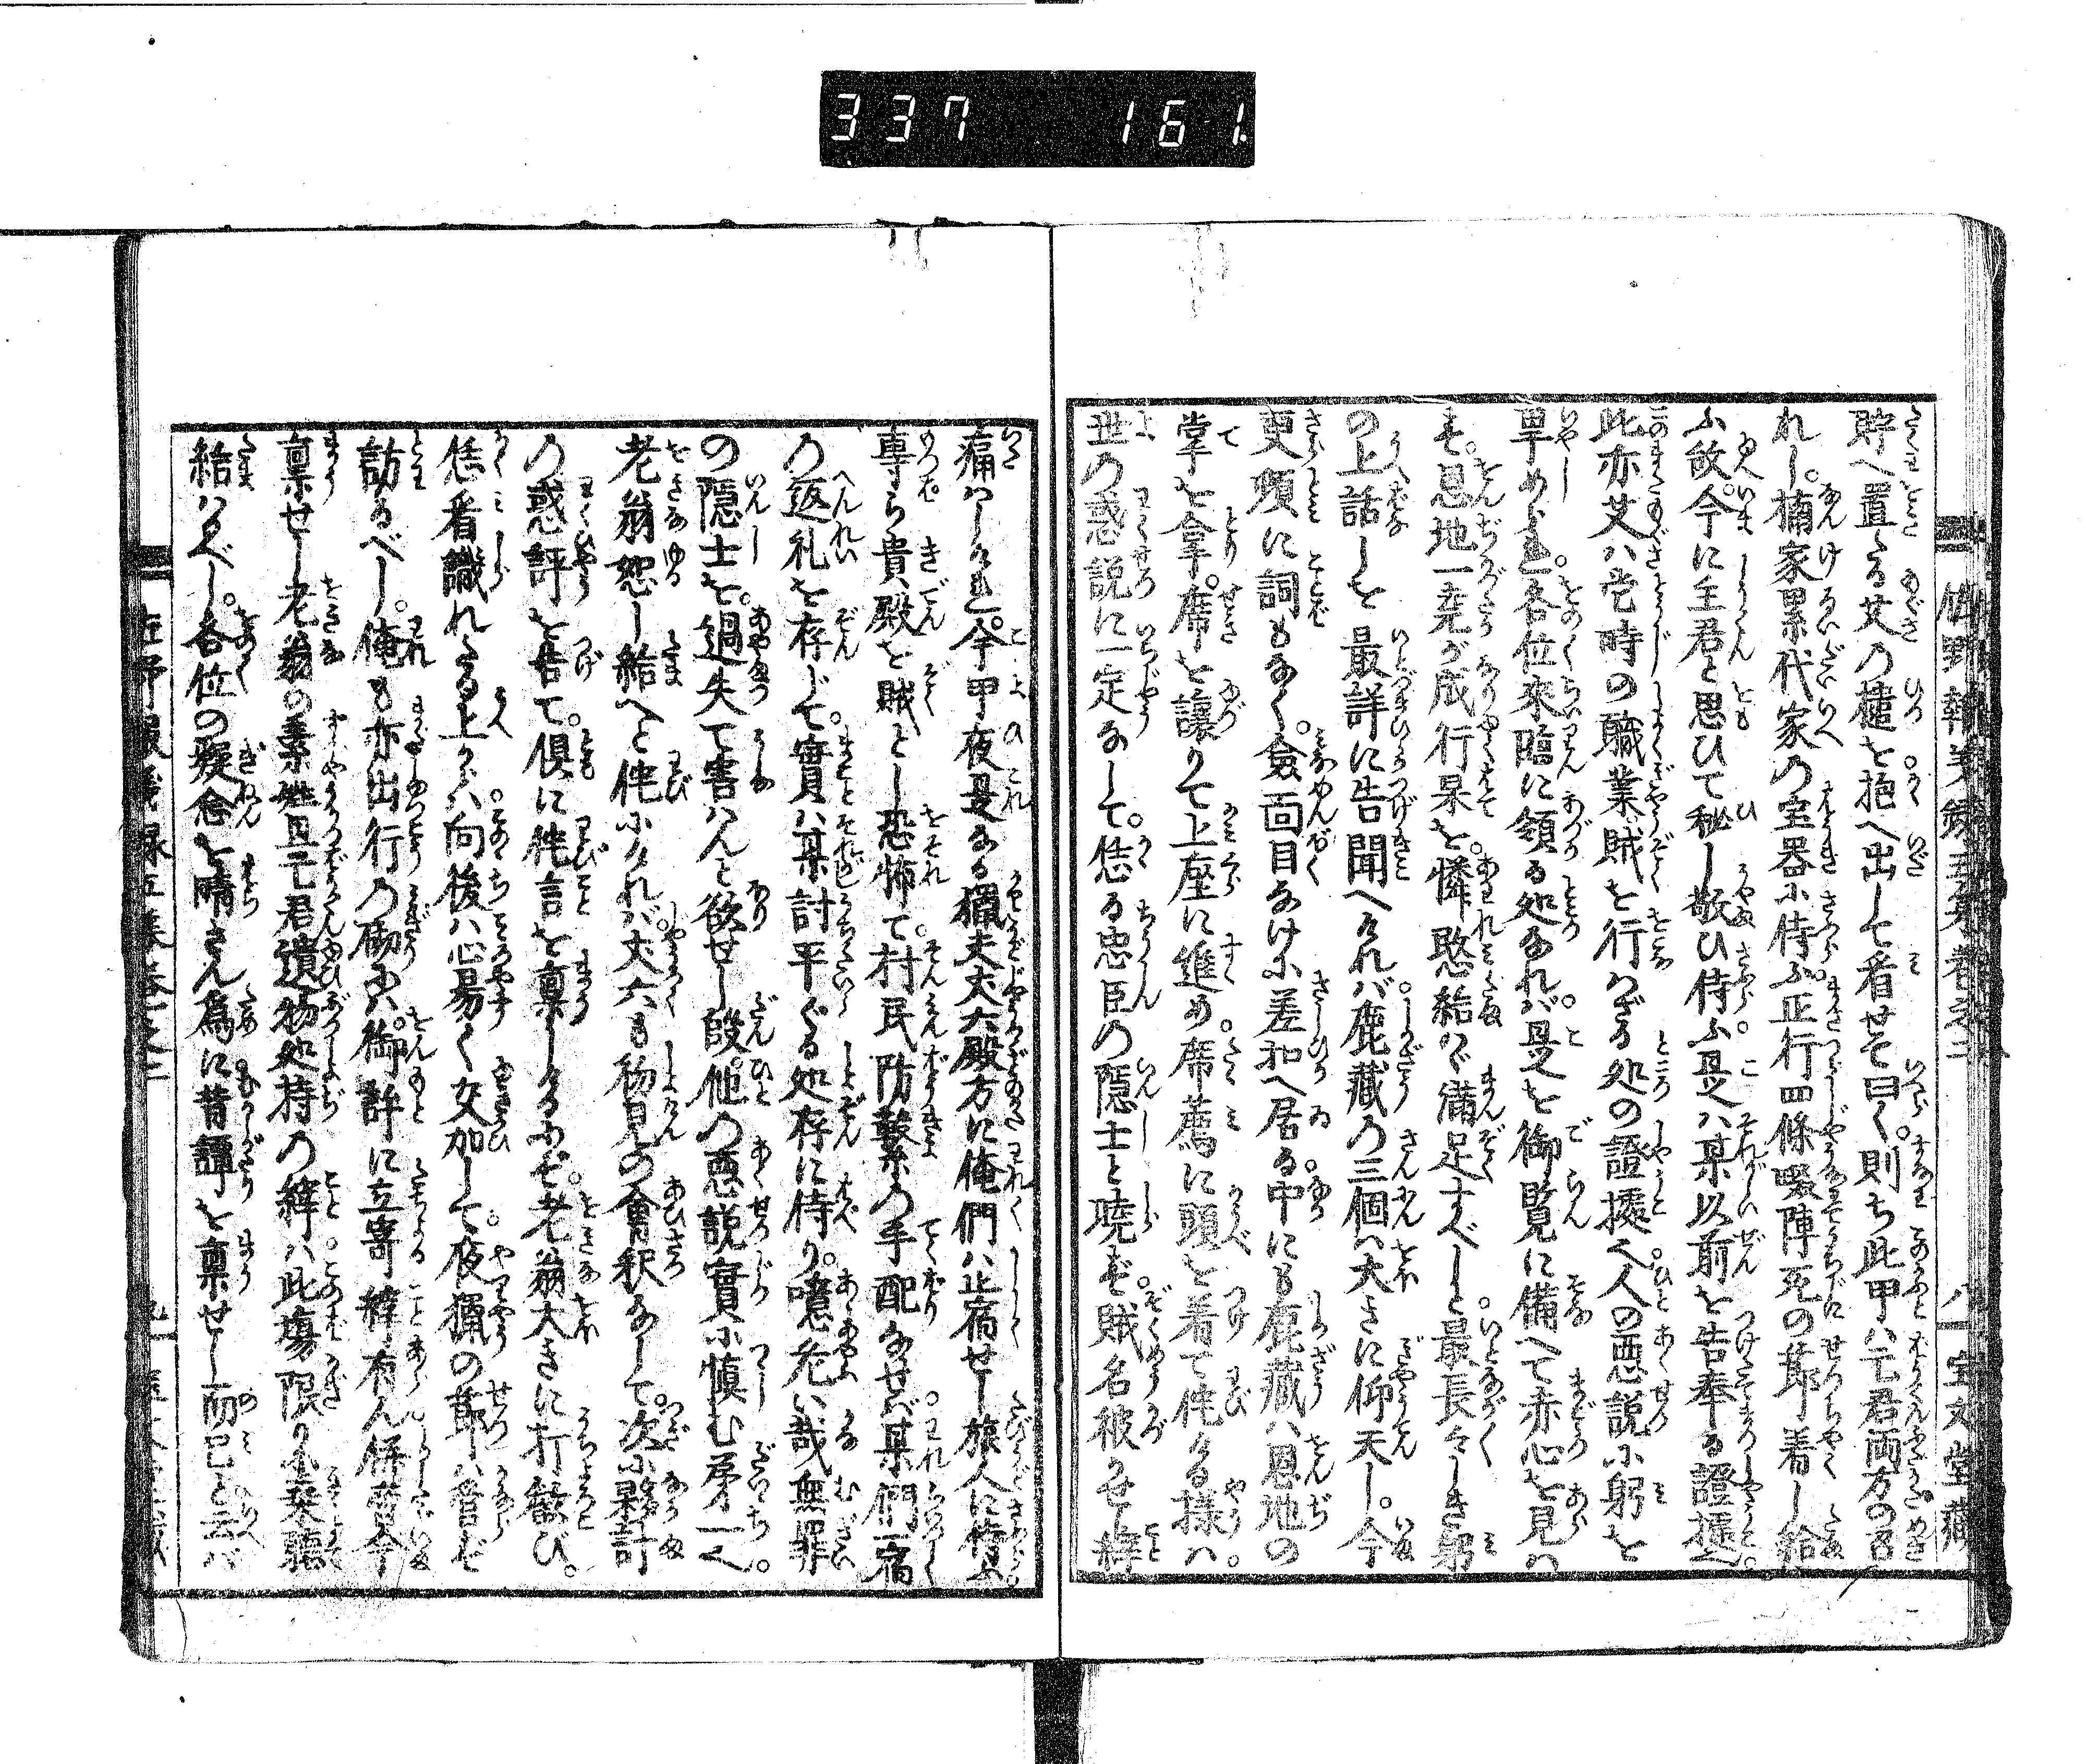 337 161
貯へ置たる艾の櫃を抱へ出して看せて曰く。則ち此甲ハ亡君両方の召
れし。楠家累代家の宝器に侍ふ。正行四條畷陣死の節着し給
ふ故。今に主君と思ひて秘し敬ひ侍ふ。是ハ某以前を告奉る證據也。
此亦艾ハ当時の職業。賊を行はざる処の證據也。人の悪説に躬を
卑めど。各位来臨に領る処なれバ。是を御覧に備へて赤心を見ハ
す。恩地一尭が成行果を。憐愍給ハヾ満足すべしと最長々しき躬
の上話しを最詳に告聞へけれバ。鹿蔵の三個ハ大きに仰天し。今
更頭に詞もなく。僉面目なげに差扣へ居る。中にも鹿蔵ハ恩地の
掌を拿。席を譲りて上座に進め。席薦に頭を着て侘る様ハ。
世の惑説に一定なして。恁る忠臣の隠士と暁ず。賊名被らせし縡
痛ハしけれ。今甲夜是なる猟夫丈六殿方に俺們ハ止宿せし旅人に侍ふ。
専ら貴殿を賊とし恐怖て。村民防禦の手配なせバ。某們一宿
の返礼を存じて。實ハ某討平ぐる処存に侍り。噫危い哉無罪
の隠士を。過失て害ハんと欲せし段。他の悪説實に慎む第一也。
老翁恕し給へと侘にけれバ。丈六も初見の會釈なして。次に夥計
の惑評を告て。倶に侘言を稟しけるにぞ。老翁大きに打歓び。
恁看識れたる上からハ向後ハ心易く交加して。夜猟の節ハ管ず
訪るべし。俺も亦出行の砌ハ。御許に立寄縡有ん。併曽今
稟せし老翁の素姓且亡君遺物処持の縡ハ。此場限りに棄聴
給ハるべし。各位の疑念を晴さん為に昔譚を稟せし而已と云バ
八 宝文堂蔵